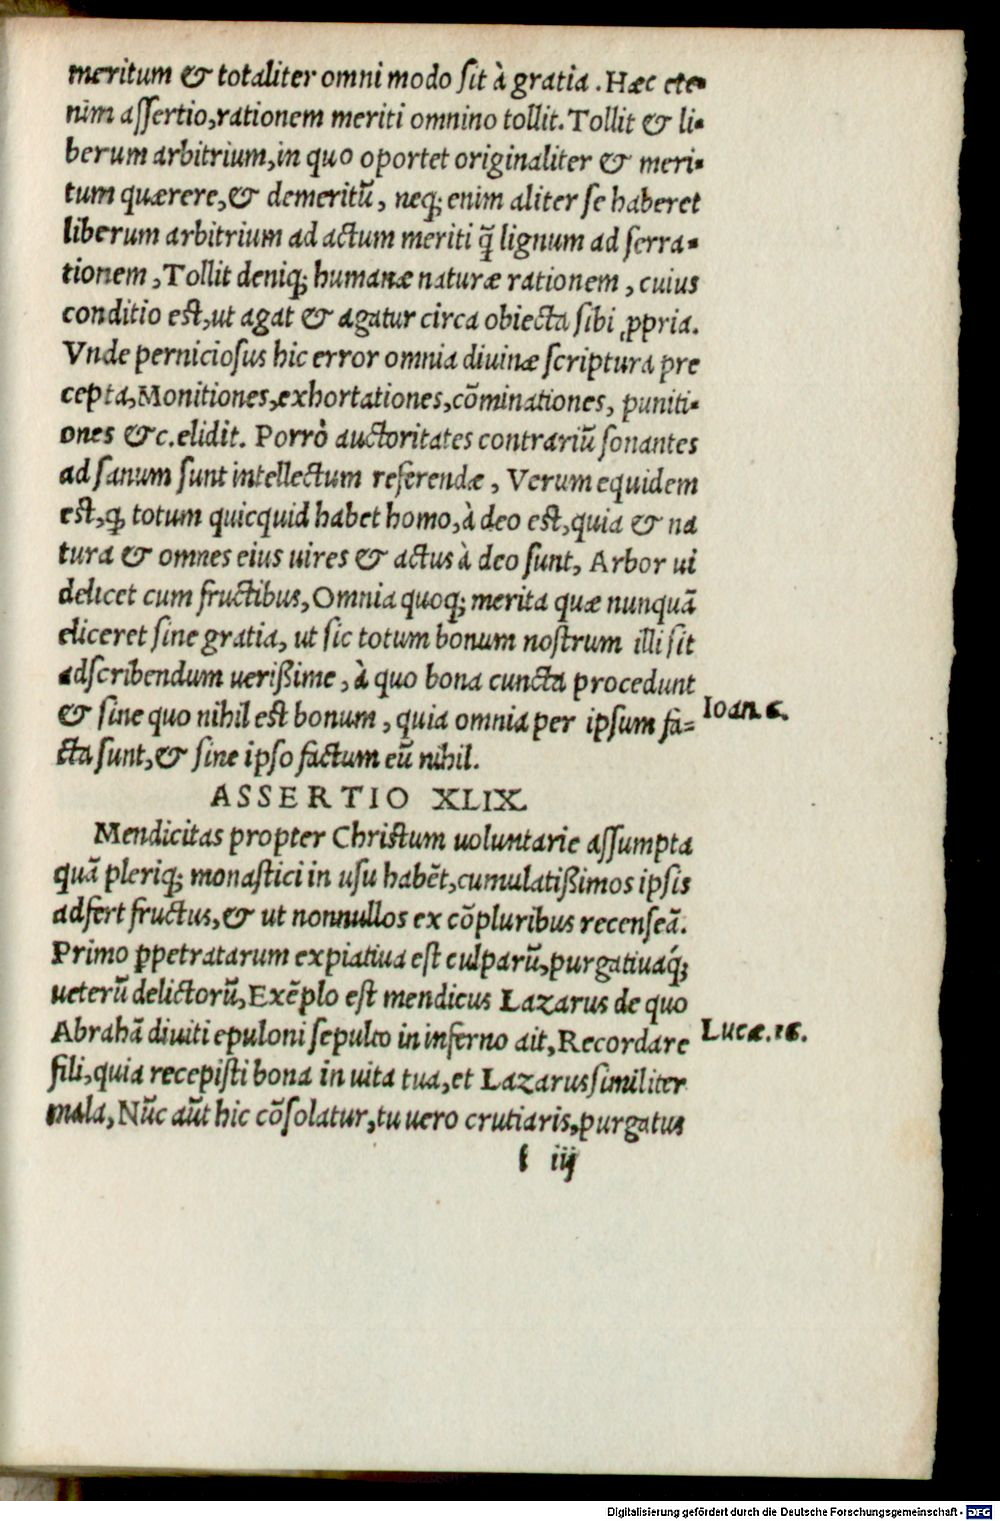 meritum & totaliter omni modo sit à gratia . Hæc ete-
nim assertio, rationem meriti omnino tollit. Tollit & li-
berum arbitrium, in quo oportet originaliter & meri-
tum quærere, & demeritū, neq; enim aliter se haberet
liberum arbitrium ad actum meriti q̃ lignum ad serra-
tionem, Tollit deniq; humanæ naturæ rationem, cuius
conditio est, ut agat & agatur circa obiecta sibi ꝓpria.
Vnde perniciosus hic error omnia diuinæ scriptura pre
cepta, Monitiones, exhortationes, cōminationes, puniti-
ones &c. elidit. Porrò auctoritates contrariū sonantes
ad sanum sunt intellectum referendæ, Verum equidem
est, ꝙ totum quicquid habet homo, à deo est, quia & na
tura & omnes eius uires & actus à deo sunt, Arbor ui
delicet cum fructibus, Omnia quoq; merita quæ nunquā
eliceret sine gratia, ut sic totum bonum nostrum illi sit
adscribendum uerißime, à quo bona cuncta procedunt
& sine quo nihil est bonum, quia omnia per ipsum fa=
cta sunt, & sine ipso factum eū nihil.
Ioan 6.
ASSERTIO XLIX.
Mendicitas propter Christum uoluntarie assumpta
quā pleriq; monastici in usu habēt, cumulatißimos ipsis
adfert fructus, & ut nonnullos ex cōpluribus recenseā.
Primo ꝑpetratarum expiatiua est culparū, purgatiuaq́;
ueterū delictorū, Exēplo est mendicus Lazarus de quo
Abrahā diuiti epuloni sepulto in inferno ait, Recordare
fili, quia recepisti bona in uita tua, et Lazarus similiter
mala, Nūc aūt hic cōsolatur, tu uero crutiaris, purgatus
Lucæ. 16.
l iij
Digitalisierung gefördert durch die Deutsche Forschungsgemeinschaft - DFG